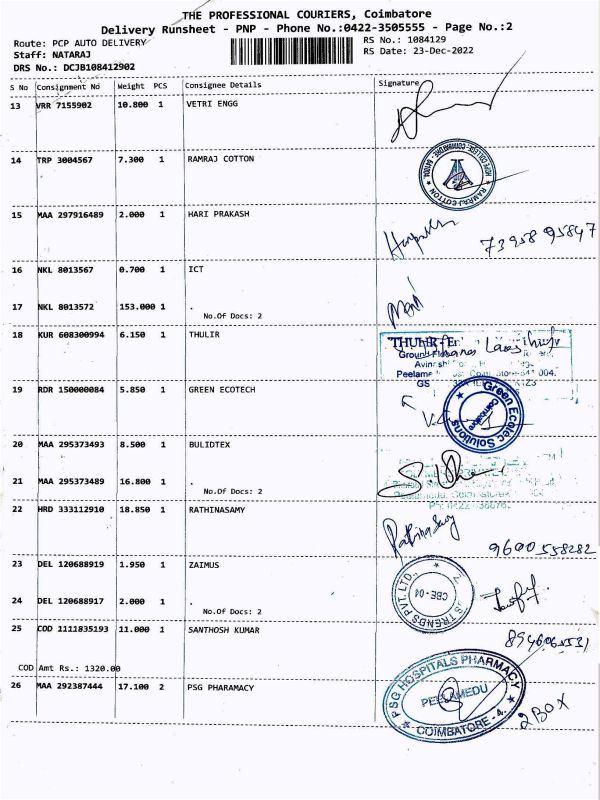 THE PROFESSIONAL COURIERS, Coimbatore
Delivery Runsheet - PNP - Phone No.:0422-3505555 - Page No.:2
Route: PCP AUTO DELIVERY
RS No.: 1084129
Staff: NATARAJ
RS Date: 23-Dec-2022
DRS No.: DCJB108412902
S No Consignment No Weight PCS Consignee Details Signature
13 VRR 7155902 10.800 1 VETRI ENGG
14 TRP 3004567 7.300 1 RAMRAJ COTTON
RAMRAJ COTTON
15 MAA 297916489 2.000 1 HARI PRAKASH
73958 95847
16 NKL 8013567 0.700 1 ICT
17 NKL 8013572 153.000 1 .
No.Of Docs: 2
18 KUR 608300994 6.150 1 THULIR
19 RDR 150000084 5.850 1 GREEN ECOTECH
Green Ecotec Solutions
Coimbatore
20 MAA 295373493 8.500 1 BULIDTEX
21 MAA 295373489 16.800 1 .
No.Of Docs: 2
22 HRD 333112910 18.850 1 RATHINASAMY
Rathinasamy
9600558282
23 DEL 120688919 1.950 1 ZAIMUS
TRENDS PVT. LTD.,
CBE - 04
24 DEL 120688917 2.000 1 .
No.Of Docs: 2
25 COD 1111835193 11.000 1 SANTHOSH KUMAR
COD Amt Rs.: 1320.00
26 MAA 292387444 17.100 2 PSG PHARAMACY
PSG HOSPITALS PHARMACY
PEELAMEDU
COIMBATORE - 4.
2 BOX